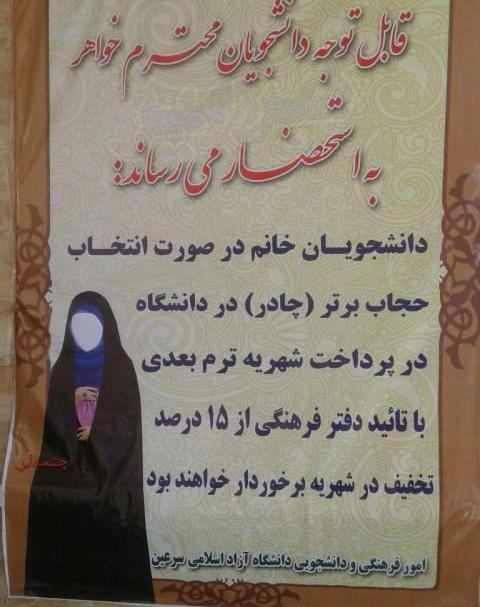 قابل توجه دانشجویان محترم خواهر
به استحضار می رساند:
دانشجویان خانم در صورت انتخاب
حجاب برتر (چادر) در دانشگاه
در پرداخت شهریه ترم بعدی
با تائید دفتر فرهنگی از ۱۵ درصد
تخفیف در شهریه برخوردار خواهند بود
امور فرهنگی و دانشجویی دانشگاه آزاد اسلامی سرعین